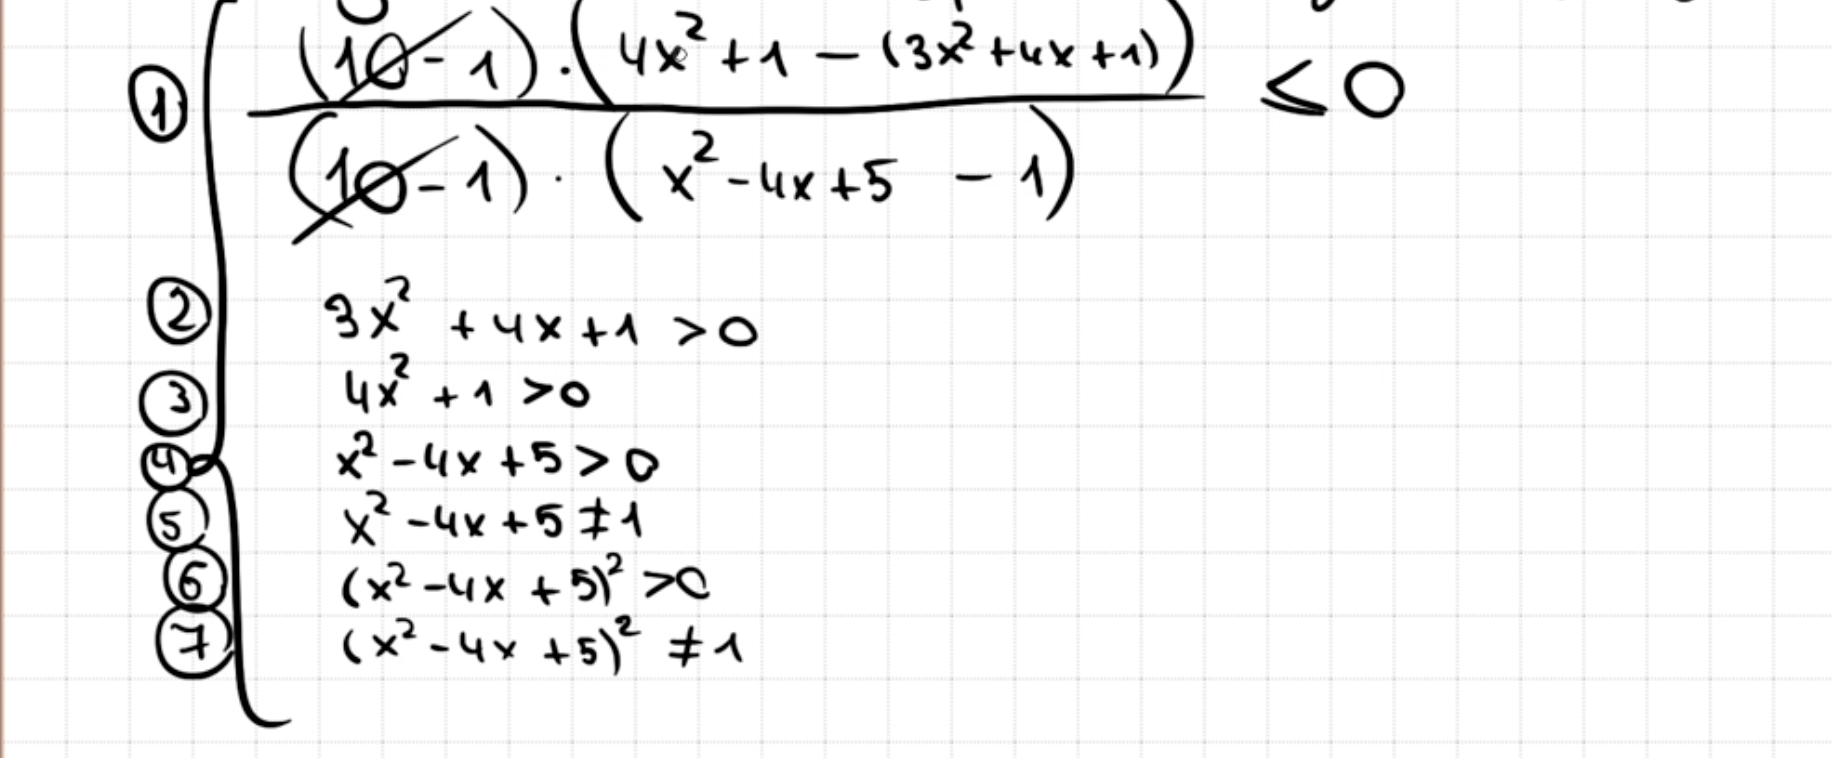 ① (10-1)·(4x²+1-(3x²+4x+1)) / (10-1)·(x²-4x+5 -1) ≤0
② 3x² +4x+1 >0
③ 4x² +1 >0
④ x²-4x+5>0
⑤ x²-4x+5≠1
⑥ (x²-4x+5)² >0
⑦ (x²-4x+5)² ≠1